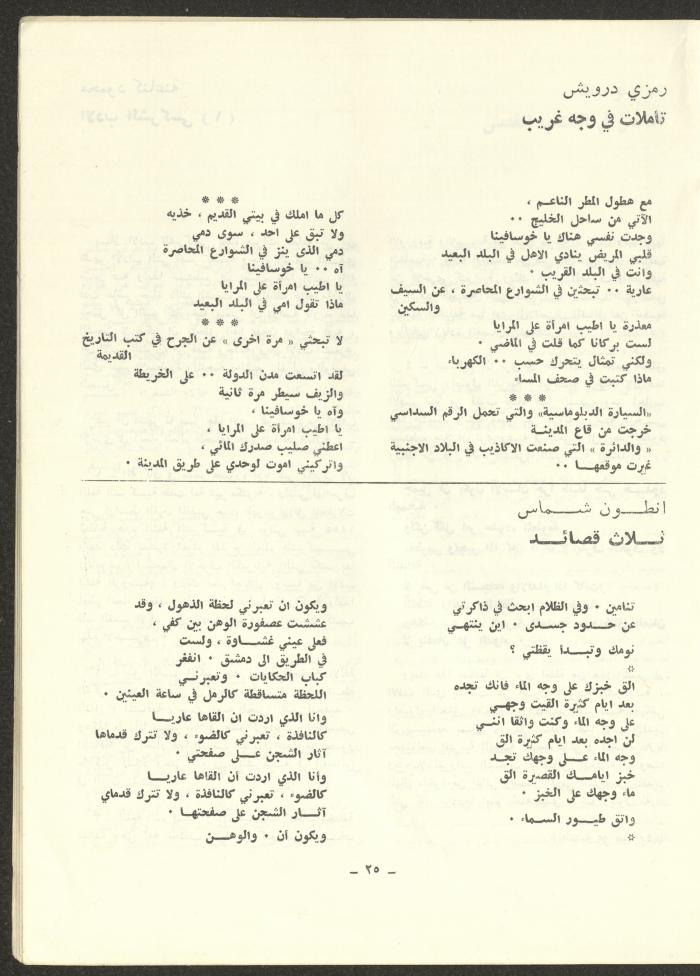 رمزي درويش
تأملات في وجه غريب
مع هطول المطر الناعم ،
الآتي من ساحل الخليج ٠٠
وجدت نفسي هناك يا خوسافينا
قلبي المريض ينادي الاهل في البلد البعيد
وانت في البلد القريب ٠
عارية ٠٠ تبحثين في الشوارع المحاصرة ، عن السيف
والسكين
معذرة يا اطيب امرأة على المرايا
لست بركانا كما قلت في الماضي ٠
ولكني تمثال يتحرك حسب ٠٠ الكهرباء
ماذا كتبت في صحف المساء
* * *
«السيارة الدبلوماسية» والتي تحمل الرقم السداسي
خرجت من قاع المدينة
« والدائرة » التي صنعت الاكاذيب في البلاد الاجنبية
غيرت موقعها ٠٠
* * *
كل ما املك في بيتي القديم ، خذيه
ولا تبق على احد ، سوى دمي
دمي الذى ينز في الشوارع المحاصرة
آه ٠٠ يا خوسافينا
يا اطيب امرأة على المرايا
ماذا تقول امي في البلد البعيد
* * *
لا تبحثي « مرة اخرى » عن الجرح في كتب التاريخ
القديمة
لقد اتسعت مدن الدولة ٠٠ على الخريطة
والزيف سيطر مرة ثانية
وآه يا خوسافينا ،
يا اطيب امرأة على المرايا ،
اعطني صليب صدرك المائي ،
واتركيني اموت لوحدي على طريق المدينة ٠
انطون شماس
ثلاث قصائد
تنامين ٠ وفي الظلام ابحث في ذاكرتي
عن حدود جسدى ٠ اين ينتهي
نومك وتبدأ يقظتي ؟
*
الق خبزك على وجه الماء فانك تجده
بعد ايام كثيرة القيت وجهي
على وجه الماء وكنت واثقا انني
لن اجده بعد ايام كثيرة الق
وجه الماء على وجهك تجد
خبز ايامك القصيرة الق
ماء وجهك على الخبز ٠
واتق طيور السماء ٠
*
ويكون ان تعبرني لحظة الذهول ، وقد
عششت عصفورة الوهن بين كفي ،
فعلى عيني غشاوة ، ولست
في الطريق الى دمشق ٠ انفغر
كباب الحكايات ٠ وتعبرني
اللحظة متساقطة كالرمل في ساعة العينين ٠
وانا الذي اردت ان القاها عاريا
كالنافذة ، تعبرني كالضوء ، ولا تترك قدماها
آثار الشجن على صفحتي ٠
وأنا الذي اردت أن القاها عاريا
كالضوء ، تعبرني كالنافذة ، ولا تترك قدماي
آثار الشجن على صفحتها ٠
ويكون أن ٠ والوهن
– ٢٥ –